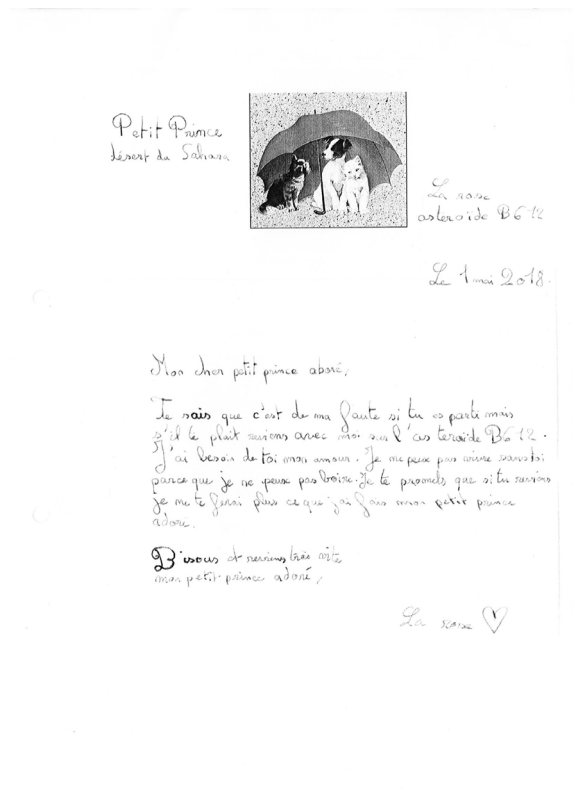 Petit Prince
désert du Sahara
La rose
asteroïde B612
Le 1 mai 2018.
Mon cher petit prince aboré,
Te sais que c'est de ma faute si tu es parti mais
s'il te plait reviens avec moi sur l'as teroïde B612.
J'ai besoin de toi mon amour. Je ne peux pas vivre sans toi
parce que je ne peux pas boire. Je te promets que si tu reviens
je ne te ferai plus ce que j'ai fais mon petit prince
adoré.
Bisous et reviens très vite
mon petit prince adoré,
La rose